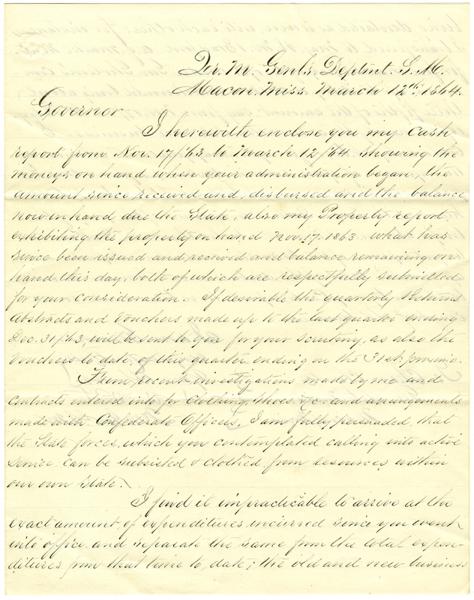 Qr. M. Genl's Deptmt. S. M.
Macon. Miss. March 12th. 1864.
Governor
I herewith enclose you my Cash
report from Nov. 17/63 to March 12/64. Showing the
moneys on hand when your administration began, the
amount since received and disbursed and the balance
now on hand due the State, also my Property report
exhibiting the property on hand Nov. 17. 1863. what has
since been issued and received and balance remaining on
hand this day, both of which are respectfully submitted
for your consideration. If desirable the quarterly Returns
Abstracts and Vouchers made up to the last quarter ending
Dec. 31/63, will be sent to you for your Scrutiny, as also the
Vouchers to date, of this quarter ending on the 31st proximo.
From recent investigations made by me and
contracts entered into for Clothing, Shoes, &c. and arrangements
made with Confederate Officers, I am fully persuaded that
the State forces, which you contemplated calling into active
Service can be subsisted & clothed from resources within
our own State.
I find it impracticable to arrive at the
exact amount of expenditures incurred since you went
into office and separate the same from the total expen-
ditures from that time to date; the old and new business